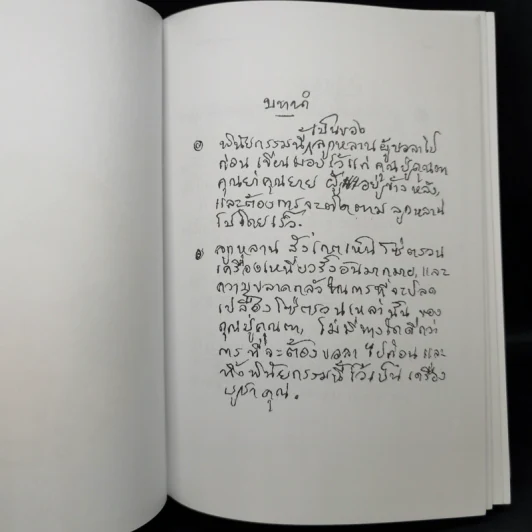 บทนำ
เป็นของ
๏ พินัยกรรมนี้ ลูกหลาน ผู้ขอลาไป
ก่อน เขียนมอบไว้แก่ คุณปู่คุณตา
คุณย่าคุณยาย ผู้ อยู่ข้างหลัง,
และต้องการจะ ตาม ลูกหลาน
ไปโดยเร็ว.
๏ ลูกหลาน สังเกตเห็น โซ่ตรวน
เครื่องเหนี่ยวรั้งอันมากมาย, และ
ความขลาดกลัว ในการที่จะปลด
เปลื้องโซ่ตรวนเหล่านั้น ของ
คุณปู่คุณตา, ไม่มีทางใดดีกว่า
การที่จะต้องขอลา ไปก่อน และ
ทิ้งพินัยกรรมนี้ ไว้เป็น เครื่อง
บูชาคุณ.